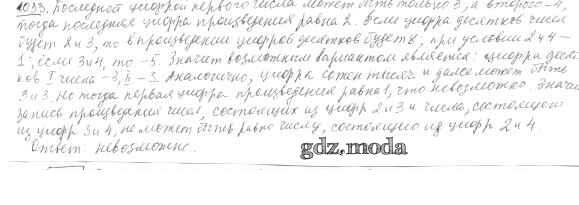 1033. Последней цифрой первого числа может быть только 3, а второго -4,
тогда последняя цифра произведения равна 2. Если цифра десятков чисел
будет 2 и 3, то в произведении цифрой десятков будет 8, при условии 2 и 4 -
1; если 3 и 4, то -5. Значит возможным вариантом является: цифры деся
ков I числа -3, II - 3. Аналогично, цифра сотен тысяч и далее может быть
3 и 3. Но тогда первая цифра произведения равна 1, что невозможно. Значи
запись произведения чисел, состоящих из цифр 2 и 3 и числа, состоящего
из цифр 3 и 4, не может быть равно числу, состоящию из цифр 2 и 4.
Ответ: невозможно.
gdz.moda